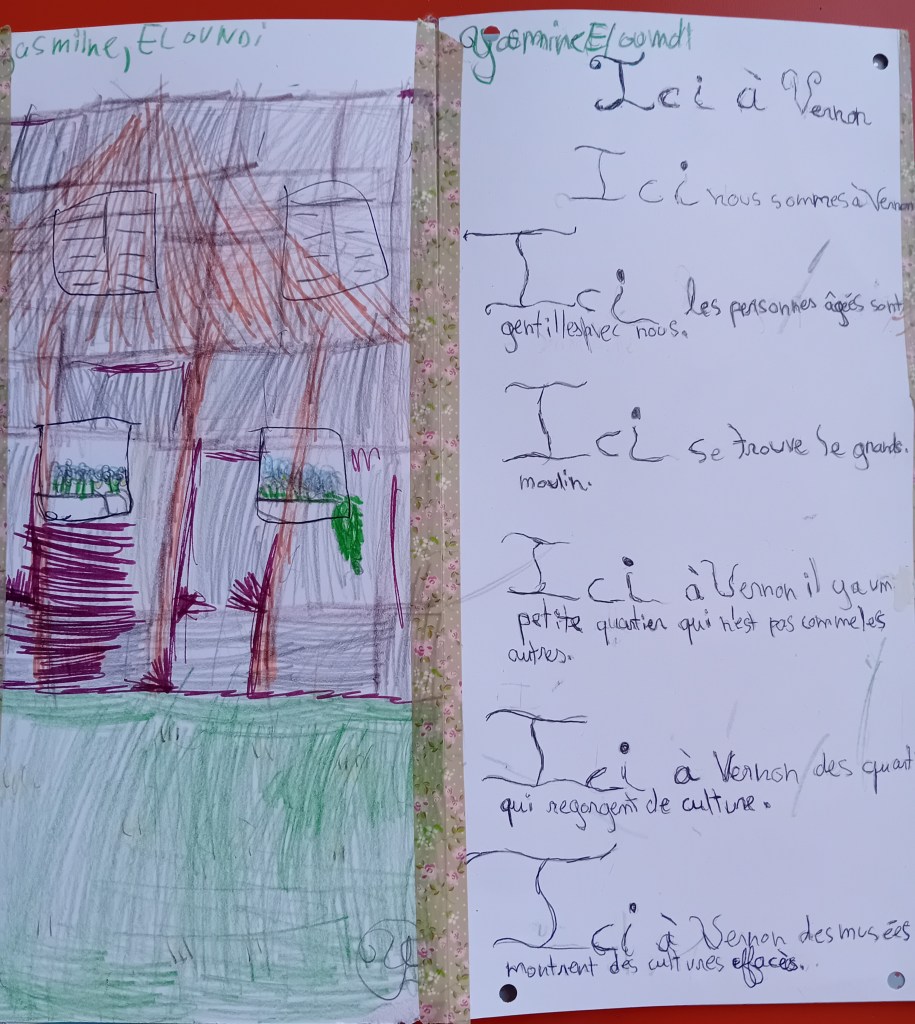 asmine, ELOUNDI
Yasmine Eloundi
Ici à Vernon
Ici nous sommes à Vernon
Ici les personnes âgées sont
gentilles avec nous.
Ici se trouve le grands.
moulin.
Ici à Vernon il y a um
petite quartier qui n'est pas comme les
autres.
Ici à Vernon des quart
qui regorgent de culture.
Ici à Vernon des musées
montrent des cultures effacés..